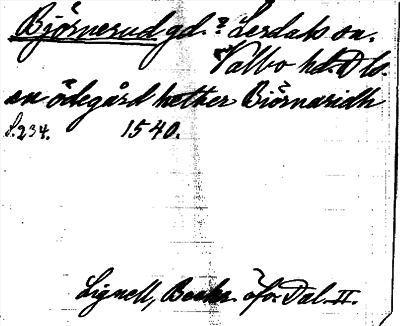 Björnerud gd. ? Lerdals sn.
Valbo hd. Dls.
en ödegård hether Biörnaridh
S. 234. 1540.
Lignell, Beskr. öfv. Dal. II.